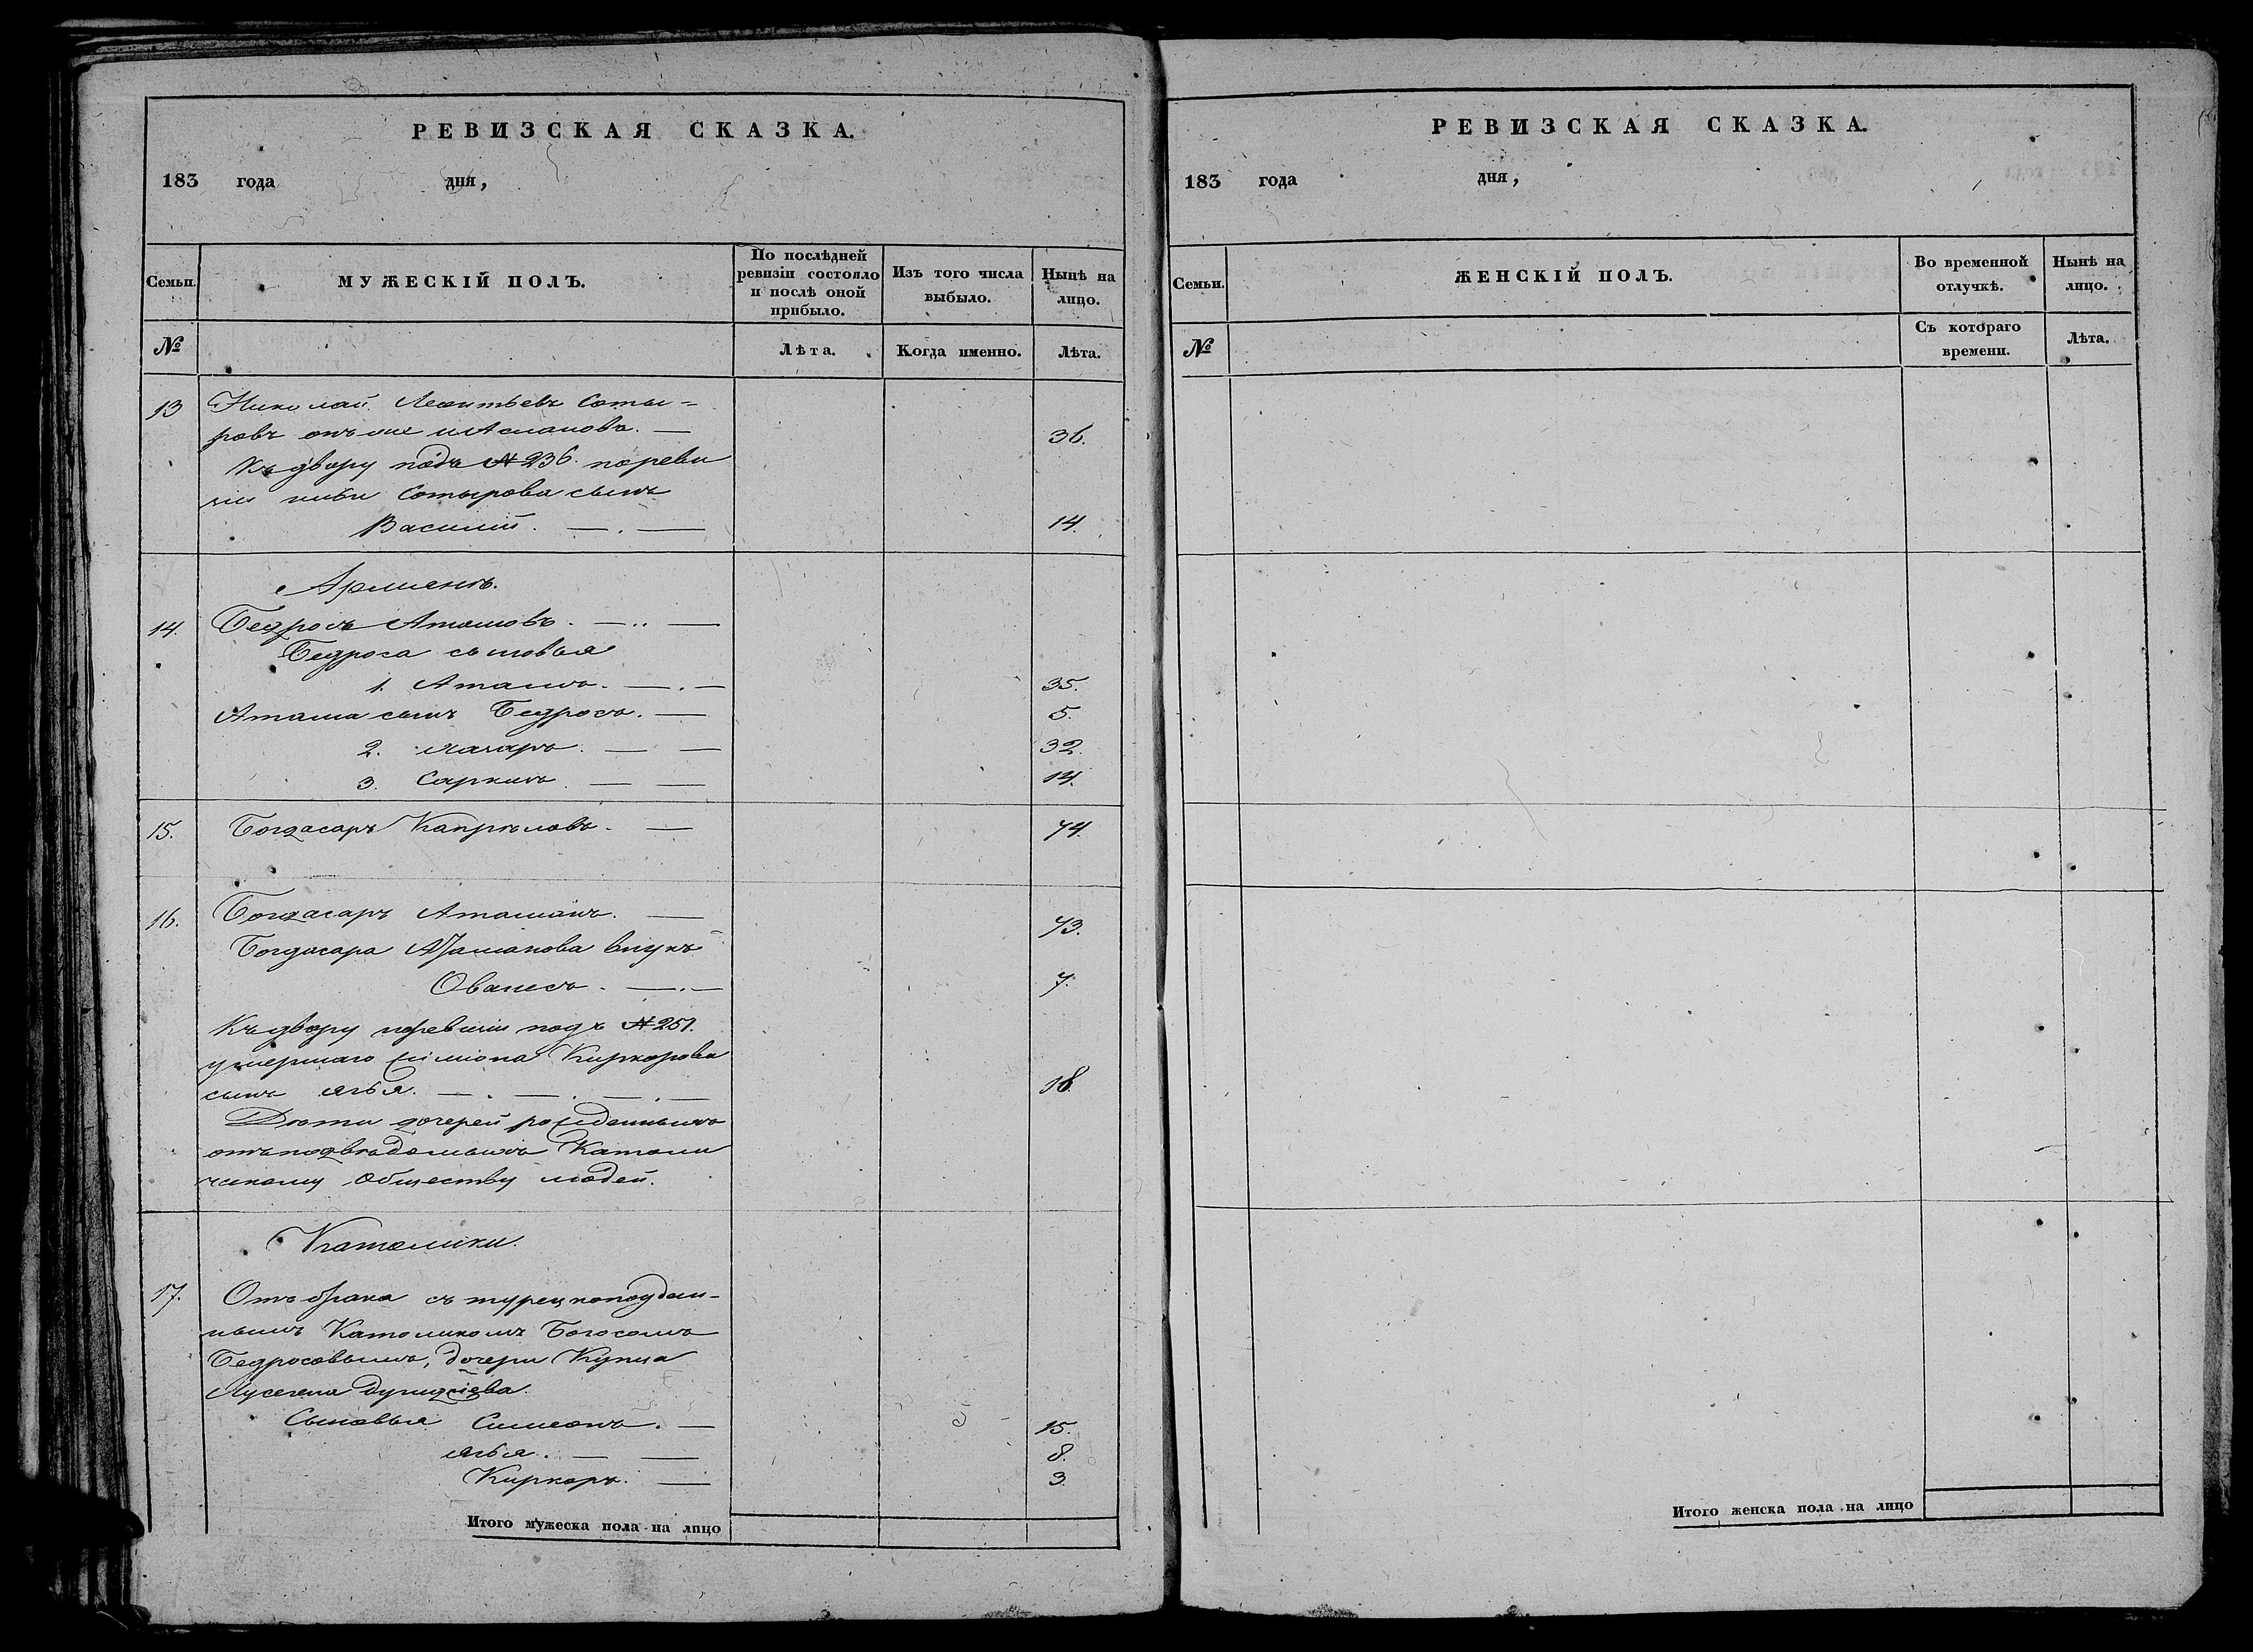 РЕВИЗСКАЯ СКАЗКА.
183 года дня,
Семьи. МУЖЕСКІЙ ПОЛЪ. По послѣдней ревизіи состояло и послѣ оной прибыло. Изъ того числа выбыло. Нынѣ на лицо.
№ Лѣта. Когда именно. Лѣта.
13 Николай Леонтьевъ Соты-
ровъ онъ же 36.
Къ двору подъ № 236 по реви
зіи Сотырова сынъ
Василій. 14.
Армянъ.
14. Бедросъ
Бедроса сыновья
1. 35.
сынъ Бедросъ. 5.
2. 32.
3. Саркисъ 14.
15. Богдасаръ 74.
16. Богдасаръ Атаманъ. 73.
Богдасара Атаманова внукъ
Ованесъ. 7.
Къ двору по ревизіи подъ № 251.
умершаго Симіона Киркорова
сынъ Агья. 18.
Дѣти дочерей рожденныхъ
отъ Католи
ческому обществу людей.
Католики.
17. Отъ брака съ турецкоподдан-
нымъ Католикомъ Богосомъ
Бедросовымъ, дочери Купца
Сыновья Симеонъ. 15.
Агья. 8.
Киркоръ. 3.
Итого мужеска пола на лицо
РЕВИЗСКАЯ СКАЗКА.
183 года дня,
Семьи. ЖЕНСКІЙ ПОЛЪ. Во временной отлучкѣ. Нынѣ на лицо.
№ Съ котораго времени. Лѣта.
Итого женска пола на лицо